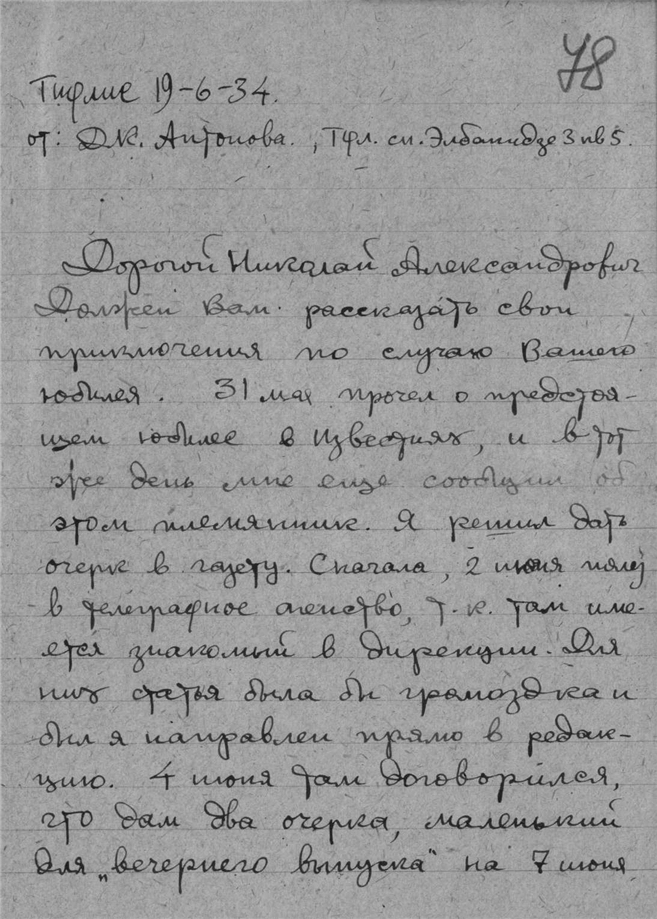 78
Тифлис 19-6-34.
от: Д.К. Антонова. , Тфл. сп. Элбакидзе 3 кв 5.
Дорогой Николай Александрович
Должен Вам рассказать свои
приключения по случаю Вашего
юбилея. 31 мая прочел о предстоя-
щем юбилее в Известиях, и в тот
же день мне еще сообщил об
этом племянник. Я решил дать
очерк в газету. Сначала, 2 июня
в телеграфное агенство, т.к. там име-
ется знакомый в дирекции. Для
них статья была бы громоздка и
был я направлен прямо в редак-
цию. 4 июня там договорился,
что дам два очерка, маленький
для „вечернего выпуска“ на 7 июня